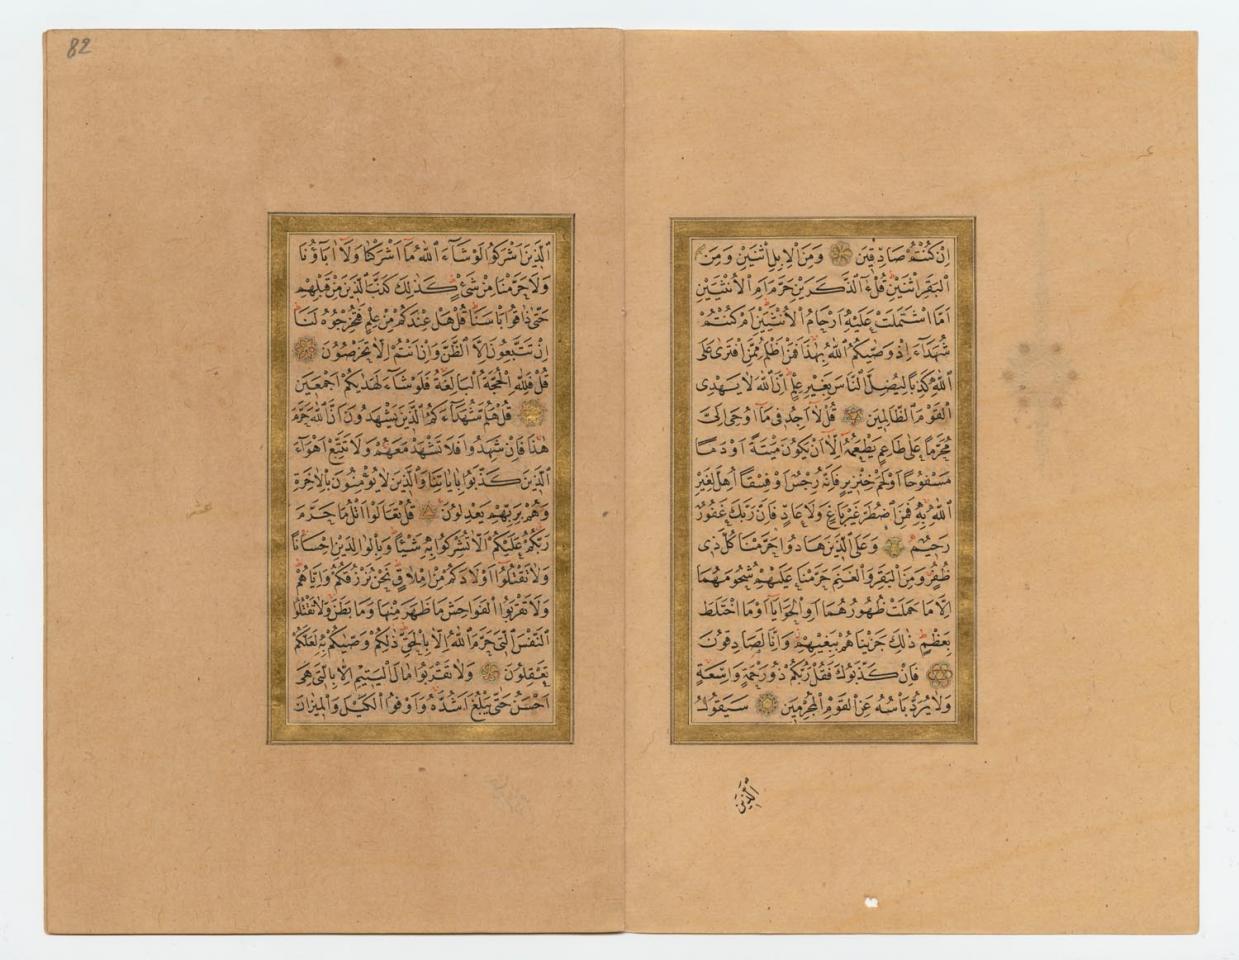 اِنْ كُنْتُمْ صَادِقِينَ وَمِنَ الْاِبِلِ اثْنَيْنِ وَمِنَ
الْبَقَرِ اثْنَيْنِ قُلْ ءَآلذَّكَرَيْنِ حَرَّمَ اَمِ الْاُنْثَيَيْنِ
اَمَّا اشْتَمَلَتْ عَلَيْهِ اَرْحَامُ الْاُنْثَيَيْنِ اَمْ كُنْتُمْ
شُهَدَاءَ اِذْ وَصّٰيكُمُ اللّٰهُ بِهٰذَا فَمَنْ اَظْلَمُ مِمَّنِ افْتَرٰى عَلَى
اللّٰهِ كَذِبًا لِيُضِلَّ النَّاسَ بِغَيْرِ عِلْمٍ اِنَّ اللّٰهَ لَا يَهْدِى
الْقَوْمَ الظَّالِمِينَ قُلْ لَا اَجِدُ فِى مَا اُوحِىَ اِلَىَّ
مُحَرَّمًا عَلٰى طَاعِمٍ يَطْعَمُهُ اِلَّا اَنْ يَكُونَ مَيْتَةً اَوْ دَمًا
مَسْفُوحًا اَوْ لَحْمَ خِنْزِيرٍ فَاِنَّهُ رِجْسٌ اَوْ فِسْقًا اُهِلَّ لِغَيْرِ
اللّٰهِ بِهِ فَمَنِ اضْطُرَّ غَيْرَ بَاغٍ وَلَا عَادٍ فَاِنَّ رَبَّكَ غَفُورٌ
رَحِيمٌ وَعَلَى الَّذِينَ هَادُوا حَرَّمْنَا كُلَّ ذِى
ظُفُرٍ وَمِنَ الْبَقَرِ وَالْغَنَمِ حَرَّمْنَا عَلَيْهِمْ شُحُومَهُمَا
اِلَّا مَا حَمَلَتْ ظُهُورُهُمَا اَوِ الْحَوَايَا اَوْ مَا اخْتَلَطَ
بِعَظْمٍ ذٰلِكَ جَزَيْنَاهُمْ بِبَغْيِهِمْ وَاِنَّا لَصَادِقُونَ
فَاِنْ كَذَّبُوكَ فَقُلْ رَبُّكُمْ ذُو رَحْمَةٍ وَاسِعَةٍ
وَلَا يُرَدُّ بَاْسُهُ عَنِ الْقَوْمِ الْمُجْرِمِينَ سَيَقُولُ
الَّذِينَ
82
الَّذِينَ اَشْرَكُوا لَوْ شَاءَ اللّٰهُ مَا اَشْرَكْنَا وَلَا اٰبَاؤُنَا
وَلَا حَرَّمْنَا مِنْ شَىْءٍ كَذٰلِكَ كَذَّبَ الَّذِينَ مِنْ قَبْلِهِمْ
حَتّٰى ذَاقُوا بَاْسَنَا قُلْ هَلْ عِنْدَكُمْ مِنْ عِلْمٍ فَتُخْرِجُوهُ لَنَا
اِنْ تَتَّبِعُونَ اِلَّا الظَّنَّ وَاِنْ اَنْتُمْ اِلَّا تَخْرُصُونَ
قُلْ فَلِلّٰهِ الْحُجَّةُ الْبَالِغَةُ فَلَوْ شَاءَ لَهَدٰيكُمْ اَجْمَعِينَ
قُلْ هَلُمَّ شُهَدَاءَكُمُ الَّذِينَ يَشْهَدُونَ اَنَّ اللّٰهَ حَرَّمَ
هٰذَا فَاِنْ شَهِدُوا فَلَا تَشْهَدْ مَعَهُمْ وَلَا تَتَّبِعْ اَهْوَاءَ
الَّذِينَ كَذَّبُوا بِاٰيَاتِنَا وَالَّذِينَ لَا يُؤْمِنُونَ بِالْاٰخِرَةِ
وَهُمْ بِرَبِّهِمْ يَعْدِلُونَ قُلْ تَعَالَوْا اَتْلُ مَا حَرَّمَ
رَبُّكُمْ عَلَيْكُمْ اَلَّا تُشْرِكُوا بِهِ شَيْئًا وَبِالْوَالِدَيْنِ اِحْسَانًا
وَلَا تَقْتُلُوا اَوْلَادَكُمْ مِنْ اِمْلَاقٍ نَحْنُ نَرْزُقُكُمْ وَاِيَّاهُمْ
وَلَا تَقْرَبُوا الْفَوَاحِشَ مَا ظَهَرَ مِنْهَا وَمَا بَطَنَ وَلَا تَقْتُلُوا
النَّفْسَ الَّتِى حَرَّمَ اللّٰهُ اِلَّا بِالْحَقِّ ذٰلِكُمْ وَصّٰيكُمْ بِهِ لَعَلَّكُمْ
تَعْقِلُونَ وَلَا تَقْرَبُوا مَالَ الْيَتِيمِ اِلَّا بِالَّتِى هِىَ
اَحْسَنُ حَتّٰى يَبْلُغَ اَشُدَّهُ وَاَوْفُوا الْكَيْلَ وَالْمِيزَانَ